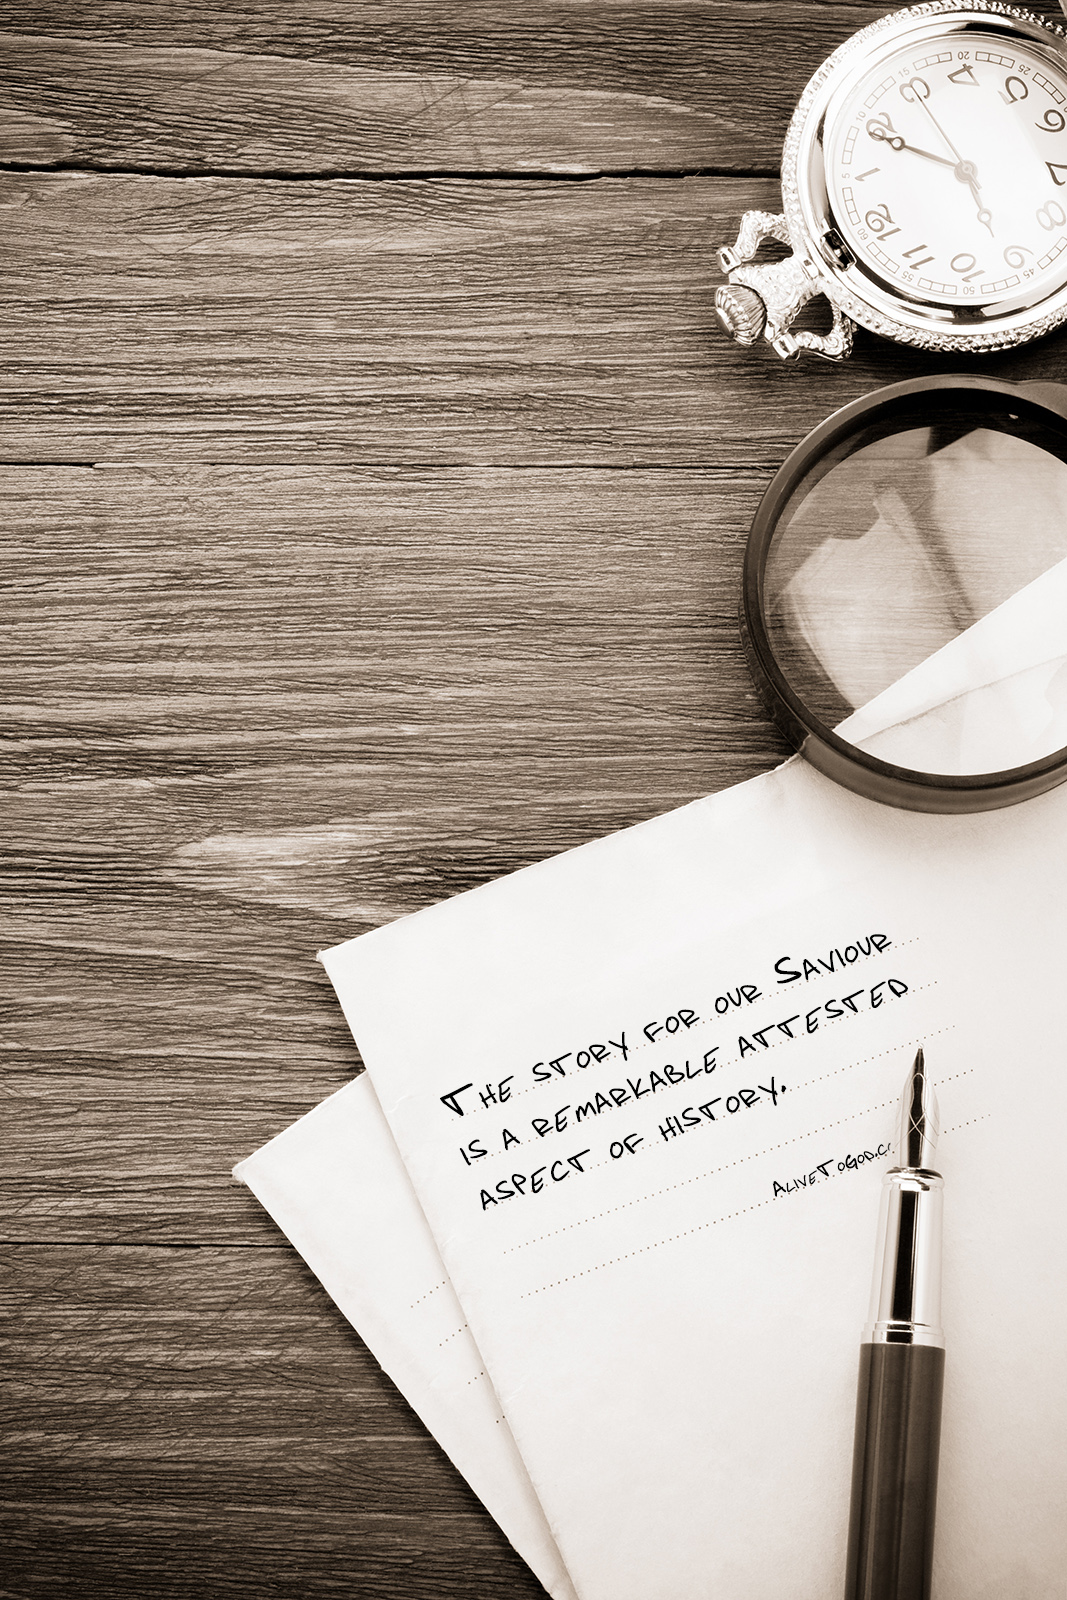 20
25
15
4
5
3
6
10
2
7
5
1
8
60
12
9
11
10
45
55
50
The story for our Saviour
is a remarkable attested
aspect of history.